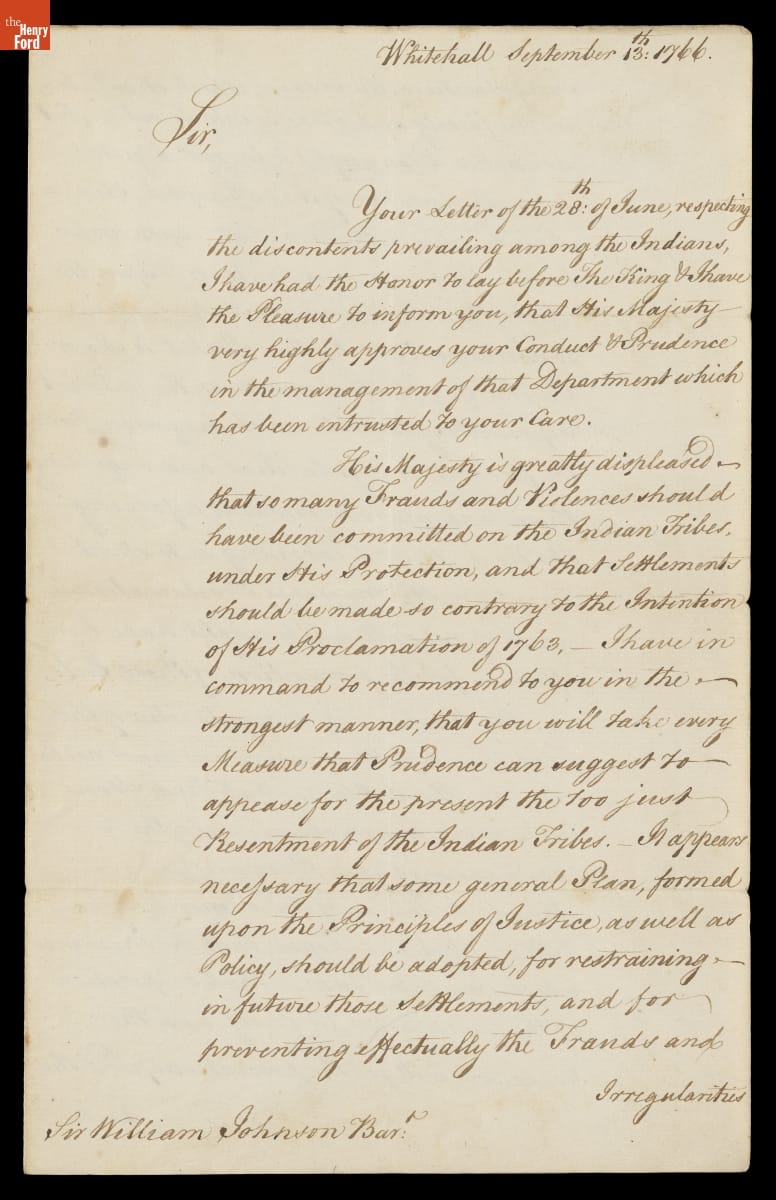 the
Henry
Ford
Whitehall September 13th: 1766.
Sir,
Your Letter of the 28th: of June, respecting
the discontents prevailing among the Indians,
I have had the Honor to lay before The King & I have
the Pleasure to inform you, that His Majesty
very highly approves your Conduct & Prudence
in the management of that Department which
has been entrusted to your Care.
His Majesty is greatly displeased
that so many Frauds and Violences should
have been committed on the Indian Tribes,
under His Protection, and that Settlements
should be made so contrary to the Intention
of His Proclamation of 1763, — I have in
command to recommend to you in the
strongest manner, that you will take every
Measure that Prudence can suggest to
appease for the present the too just
Resentment of the Indian Tribes. — It appears
necessary that some general Plan, formed
upon the Principles of Justice, as well as
Policy, should be adopted, for restraining
in future those Settlements, and for
preventing effectually the Frauds and
Irregularities
Sir William Johnson Bart: